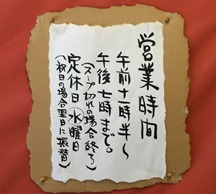 営業時間
午前十一時半～
午後七時まで。
(スープ切れの場合終了)
定休日 水曜日
(祝日の場合翌日に振替)